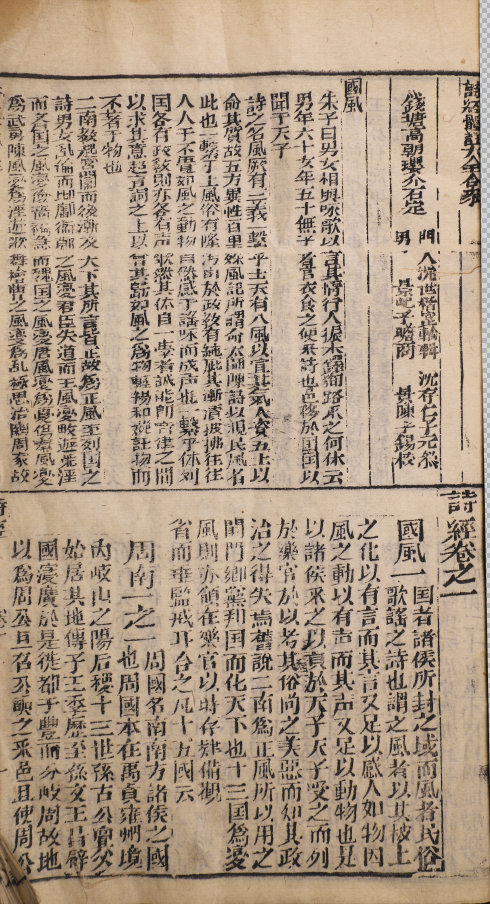 詩經體註大全合參
錢塘高朝瓔介石定
門人沈世楷 輯 沈存仁子元參
男 景屺子瞻 景陳子錫校
國風
朱子曰男女相與詠歌以言其情行人振木鐸徇路采之何休云
男年六十女年五十無子者官衣食之使采詩也邑移於國國以
聞于天子
詩之名風厥有二義一繫乎土天有八風以宣其氣人資五土以
命其質故五方異性百里殊風記所謂命太師陳詩以觀民風者
此也一繫乎上風俗有隆污由於政教有純疵其漸漬披拂往往
入人于不覺如風之動物自然感于謠咏而成声也一繫乎体列
國各有政教則亦各有声歌樂其体自一學者誠能即言律之間
以求其意趣言詞之上以會其歸如風之為物輕揚和婉註物而
不著于物也
二南教起宮闈而後漸及天下其所言皆正故為正風至列国之
詩男女乱倫而邶鄘衛鄭之風変君臣失道而王風変畋遊荒淫
而各国之風変儉嗇褊急而魏国之風変唐風変為憂傷秦風変
為武勇陳風変為淫遊歌舞檜曹之風変為乱極思治豳周家故
詩經卷之一
國風一 国者諸侯所封之域而風者民俗
歌謠之詩也謂之風者以其被上
之化以有言而其言又足以感人如物因
風之動以有声而其声又足以動物也是
以諸侯采之以貢於天子天子受之而列
於樂官於以考其俗尚之美惡而知其政
治之得失焉舊說二南為正風所以用之
閨門鄉黨邦国而化天下也十三国為变
風則亦領在樂官以時存肄備觀
省而垂監戒耳合之凡十五國云
周南一之一 周國名南南方諸侯之國
也周國本在禹貢雍州境
內岐山之陽后稷十三世孫古公亶父
始居其地傳子王季歷至孫文王昌辟
國寖廣於是徙都于豐而分岐周故地
以為周公旦召公奭之采邑且使周公